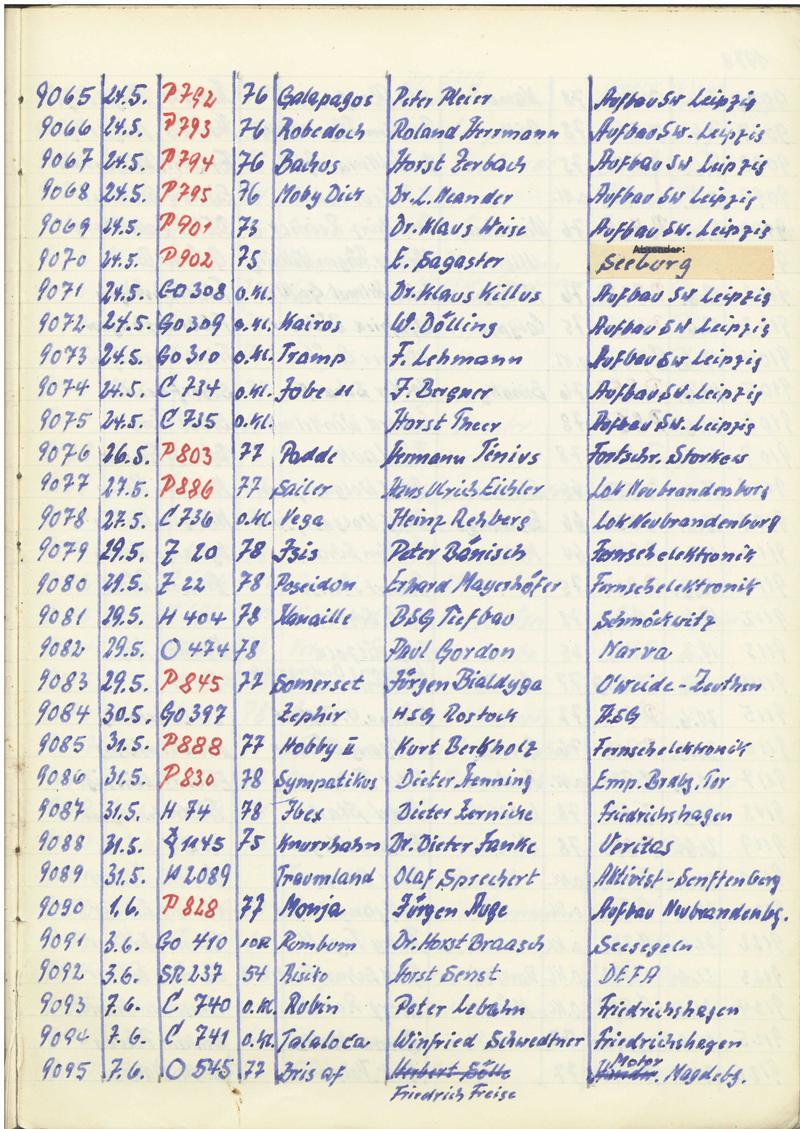 9065 24.5. P792 76 Galapagos Peter Pleier Aufbau SW Leipzig
9066 24.5. P793 76 Robedoch Roland Herrmann Aufbau SW. Leipzig
9067 24.5. P794 76 Bachus Horst Zerbach Aufbau SW Leipzig
9068 24.5. P795 76 Moby Dick Dr. L. Mander Aufbau SW Leipzig
9069 24.5. P901 73 Dr. Klaus Weise Aufbau SW. Leipzig
9070 24.5. P902 75 E. Sagaster Absender: Seeburg
9071 24.5. GO 308 o.Kl. Dr. Klaus Killus Aufbau SW Leipzig
9072 24.5. GO 309 o.Kl. Kairos W. Dölling Aufbau SW Leipzig
9073 24.5. GO 310 o.Kl. Tramp F. Lehmann Aufbau SW Leipzig
9074 24.5. C 734 o.Kl. F. Bergner Aufbau SW. Leipzig
9075 24.5. C 735 o.Kl. Horst Theer Aufbau SW. Leipzig
9076 26.5. P803 77 Padde Hermann Tenius Fortschr. Storkow
9077 27.5. P886 77 Sailer Hans Ulrich Eichler Lok Neubrandenburg
9078 27.5. C 736 o.Kl. Vega Heinz Rehberg Lok Neubrandenburg
9079 29.5. Z 20 78 Isis Peter Bänisch Fernsehelektronik
9080 29.5. Z 22 78 Poseidon Erhard Mayerhöfer Fernsehelektronik
9081 29.5. H 404 78 Kanaille BSG Tiefbau Schmöckwitz
9082 29.5. O 474 78 Paul Gordon Narva
9083 29.5. P845 77 Somerset Jürgen Bialdyga O'weide-Zeuthen
9084 30.5. GO 397 Zephir HSG Rostock HSG
9085 31.5. P888 77 Hobby II Kurt Berkholz Fernsehelektronik
9086 31.5. P830 78 Sympatikus Dieter Henning Emp. Brabg. Tor
9087 31.5. H 74 78 Ibex Dieter Zernicke Friedrichshagen
9088 31.5. 1145 75 Knurrhahn Dr. Dieter Janke Veritas
9089 31.5. H 2089 Traumland Olaf Sprechert Aktivist-Senftenberg
9090 1.6. P828 77 Monja Jürgen Auge Aufbau Neubrandenbg.
9091 3.6. GO 410 IOR Rombum Dr. Horst Braasch Seesegeln
9092 3.6. SR 237 54 Risiko Horst Senst DEFA
9093 7.6. C 740 o.Kl. Rubin Peter Lebahn Friedrichshagen
9094 7.6. C 741 o.Kl. Talaloca Winfried Schwedtner Friedrichshagen
9095 7.6. O 545 77 Bris af Herbert Motor Magdebg.
Friedrich Freise